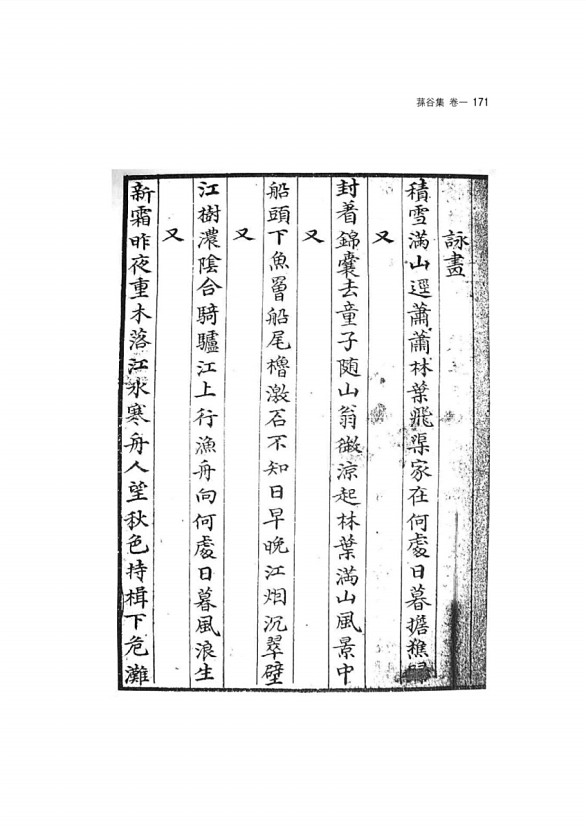 蓀谷集 卷一 171
詠畫
積雪滿山逕蕭蕭林葉飛渠家在何處日暮擔樵歸
又
封着錦囊去童子随山翁微涼起林葉滿山風景中
又
船頭下魚罾船尾櫓激石不知日早晚江烟沉翠壁
又
江樹濃陰合騎驢江上行漁舟向何處日暮風浪生
又
新霜昨夜重木落江水寒舟人望秋色持楫下危灘